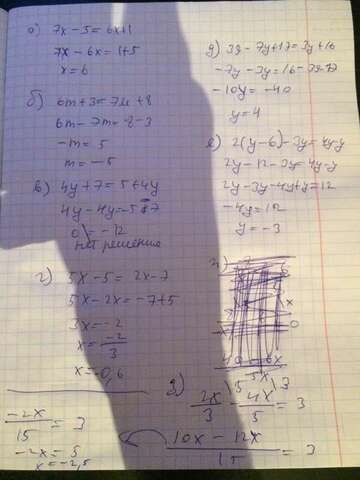 а) 7x - 5 = 6x+1
7x - 6x = 1+5
x = 6
б) 6m + 3 = 7m + 8
6m - 7m = 8 - 3
-m = 5
m = -5
в) 4y + 7 = 5 + 4y
4y - 4y = -5 - 7
0 = -12
нет решение
г) 5x - 5 = 2x - 7
5x - 2x = -7+5
3x = -2
x = -2/3
x = -0,6
-2x/15 = 3
-2x = 5
x = -2,5
д) 39 - 7y + 17 = 3y + 16
-7y - 3y = 16 -
-10y = -40
y = 4
е) 2(y - 6) - 3y = 4y - y
2y - 12 - 3y = 4y - y
2y - 3y - 4y + y = 12
-4y = 12
y = -3
з) 2x/3 \5 - 4x/5 \3 = 3
10x - 12x/15 = 3